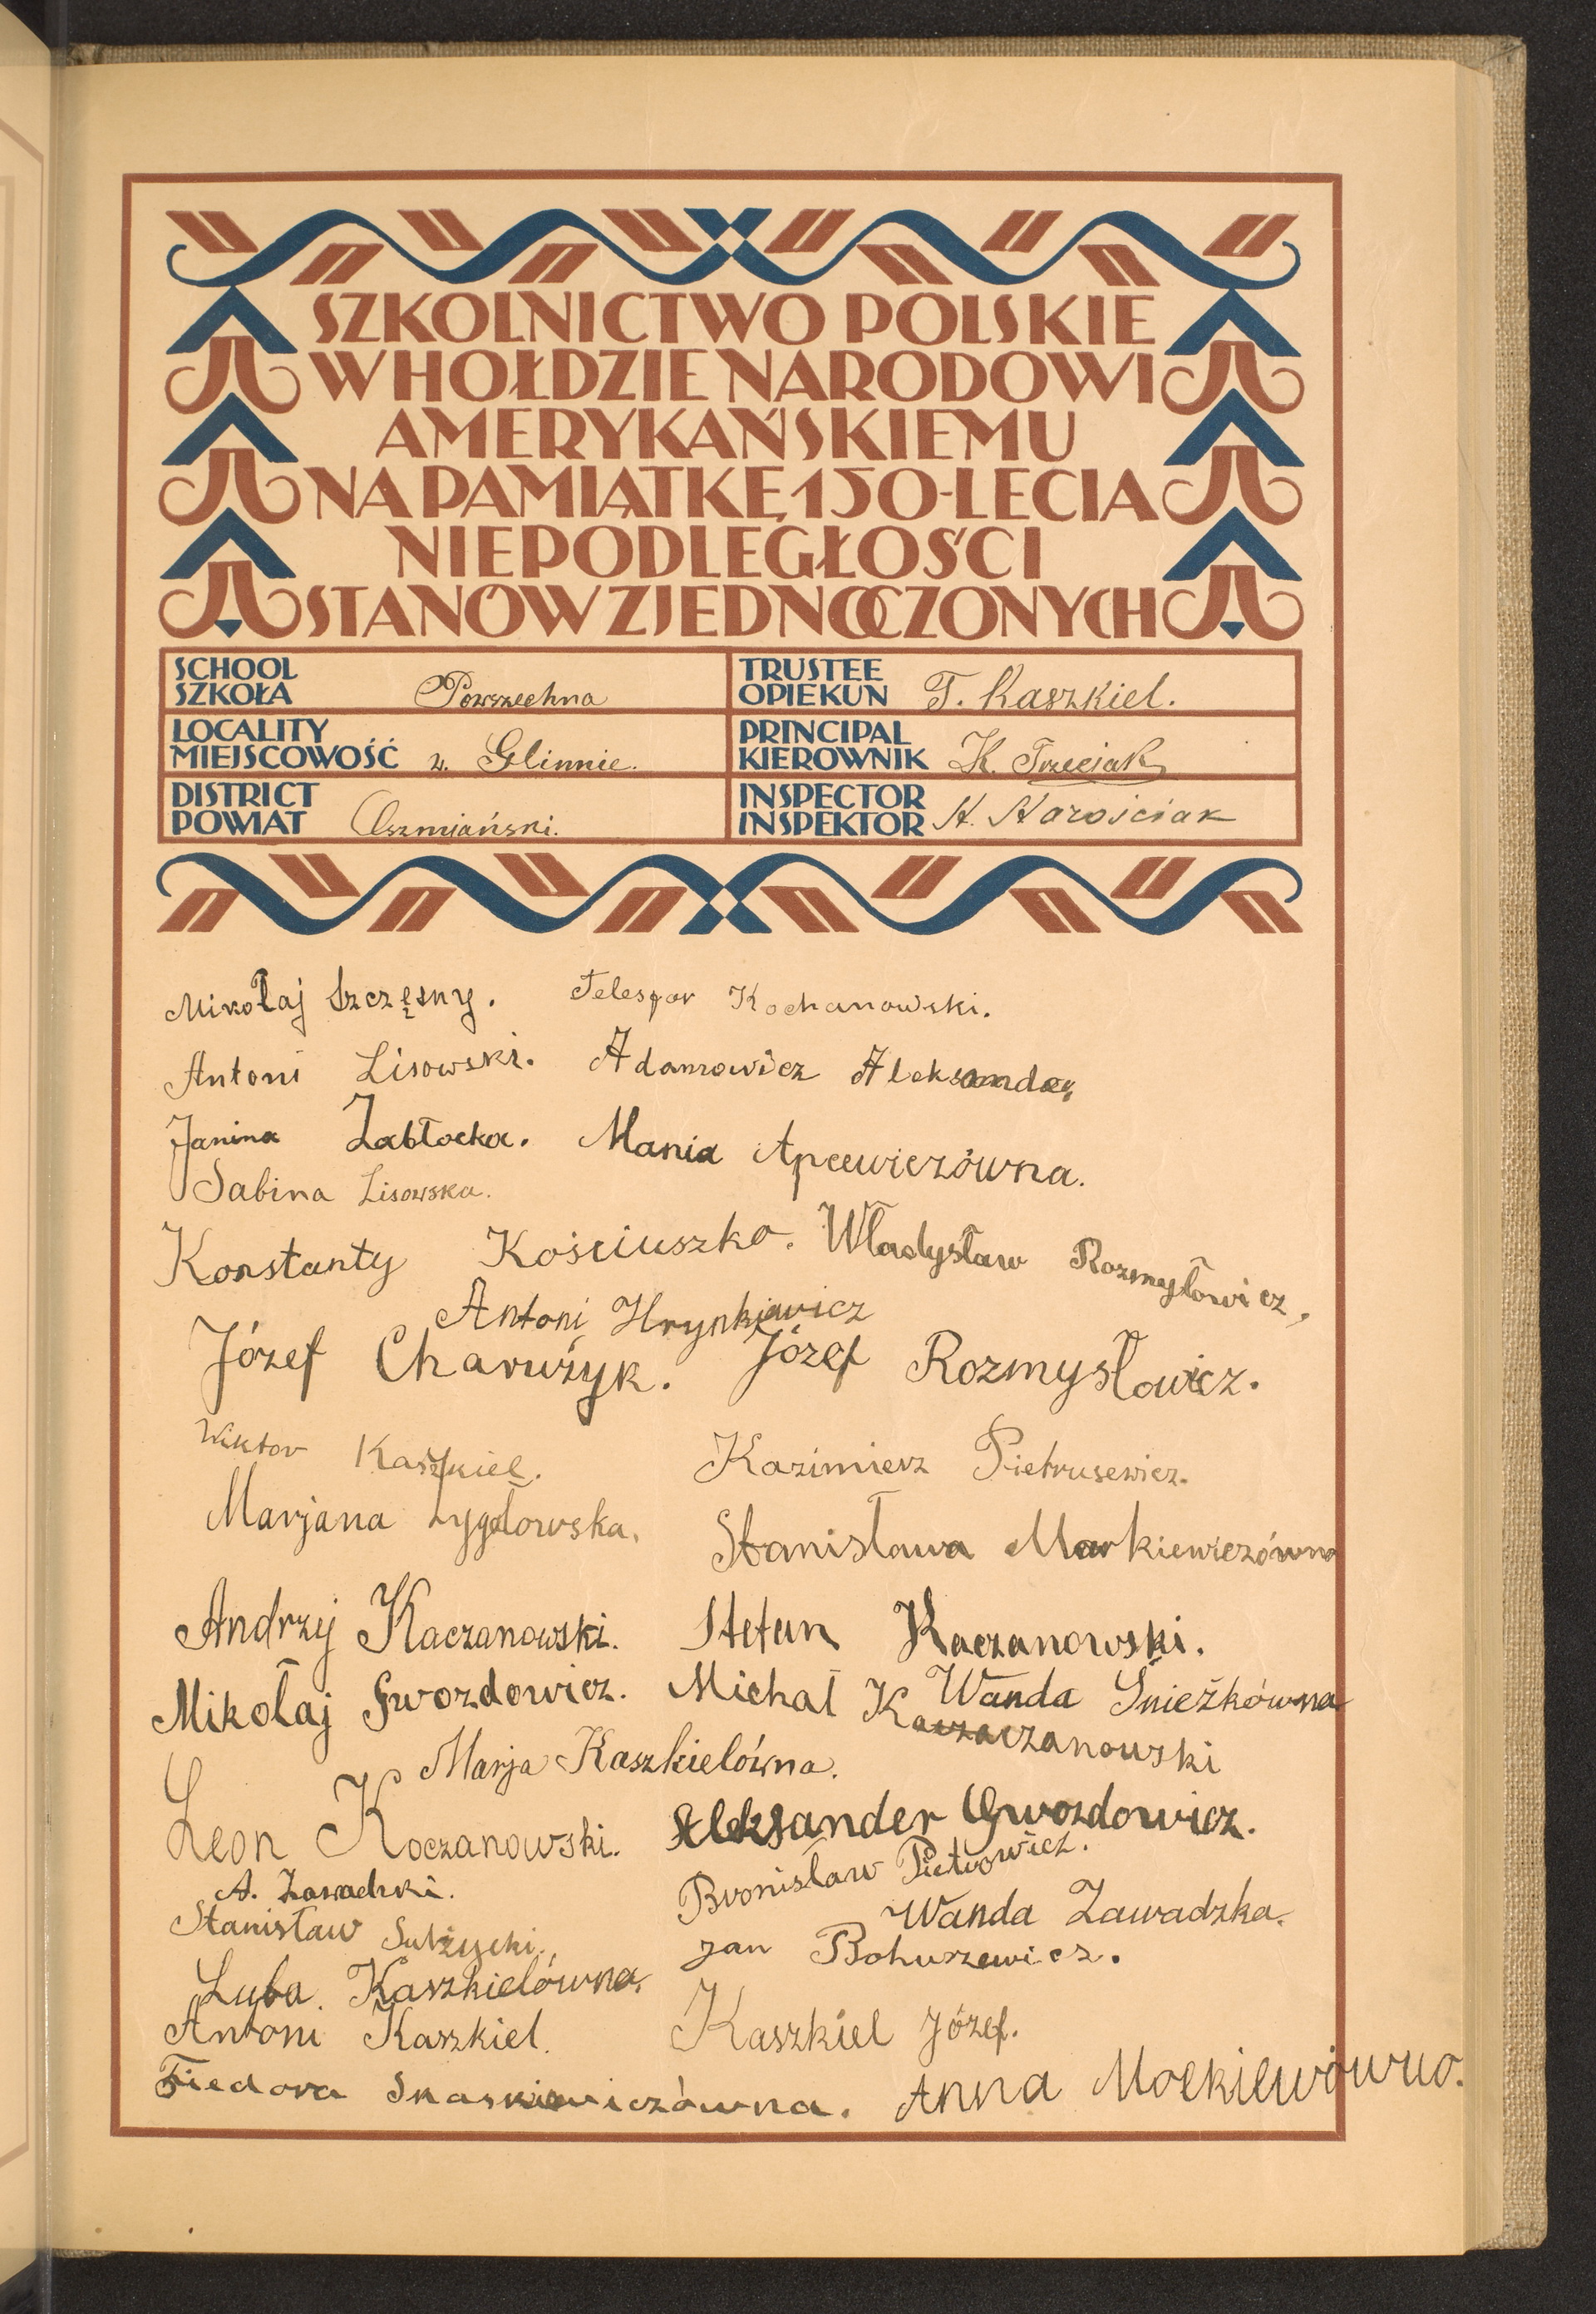 SZKOLNICTWO POLSKIE
W HOŁDZIE NARODOWI
AMERYKAŃSKIEMU
NA PAMIĄTKĘ 150-LECIA
NIEPODLEGŁOŚCI
STANÓW ZJEDNOCZONYCH
SCHOOL
SZKOŁA Powszechna
TRUSTEE
OPIEKUN T. Kaszkiel.
LOCALITY
MIEJSCOWOŚĆ w. Glinnie.
PRINCIPAL
KIEROWNIK K. Trzeciak
DISTRICT
POWIAT Oszmiański.
INSPECTOR
INSPEKTOR H.
Mikołaj Szczęsny. Telesfor Kochanowski.
Antoni Lisowski. Adamowicz Aleksander,
Janina Zabłocka. Mania Apcewiczówna.
Sabina Lisowska.
Konstanty Kościuszko. Władysław Rozmysłowicz,
Antoni Hrynkiewicz
Józef Charużyk. Józef Rozmysłowicz.
Wiktor Kaszkiel. Kazimierz Pietrusewicz.
Marjana Stanisława Markiewiczówna
Andrzy Kaczanowski. Stefan Kaczanowski.
Mikołaj Gwozdowicz. Michał Kaczaczanowski
Wanda Śnieżkówna
Marja Kaszkielówna.
Leon Koczanowski. Aleksander Gwozdowicz.
A. Zawadzki. Bronisław Pietrowicz.
Stanisław Wanda Zawadzka.
Jan Bohuszewicz.
Luba. Kaszkielówna.
Antoni Kaszkiel. Kaszkiel Józef.
Fiedora Skaskiewiczówna. Anna